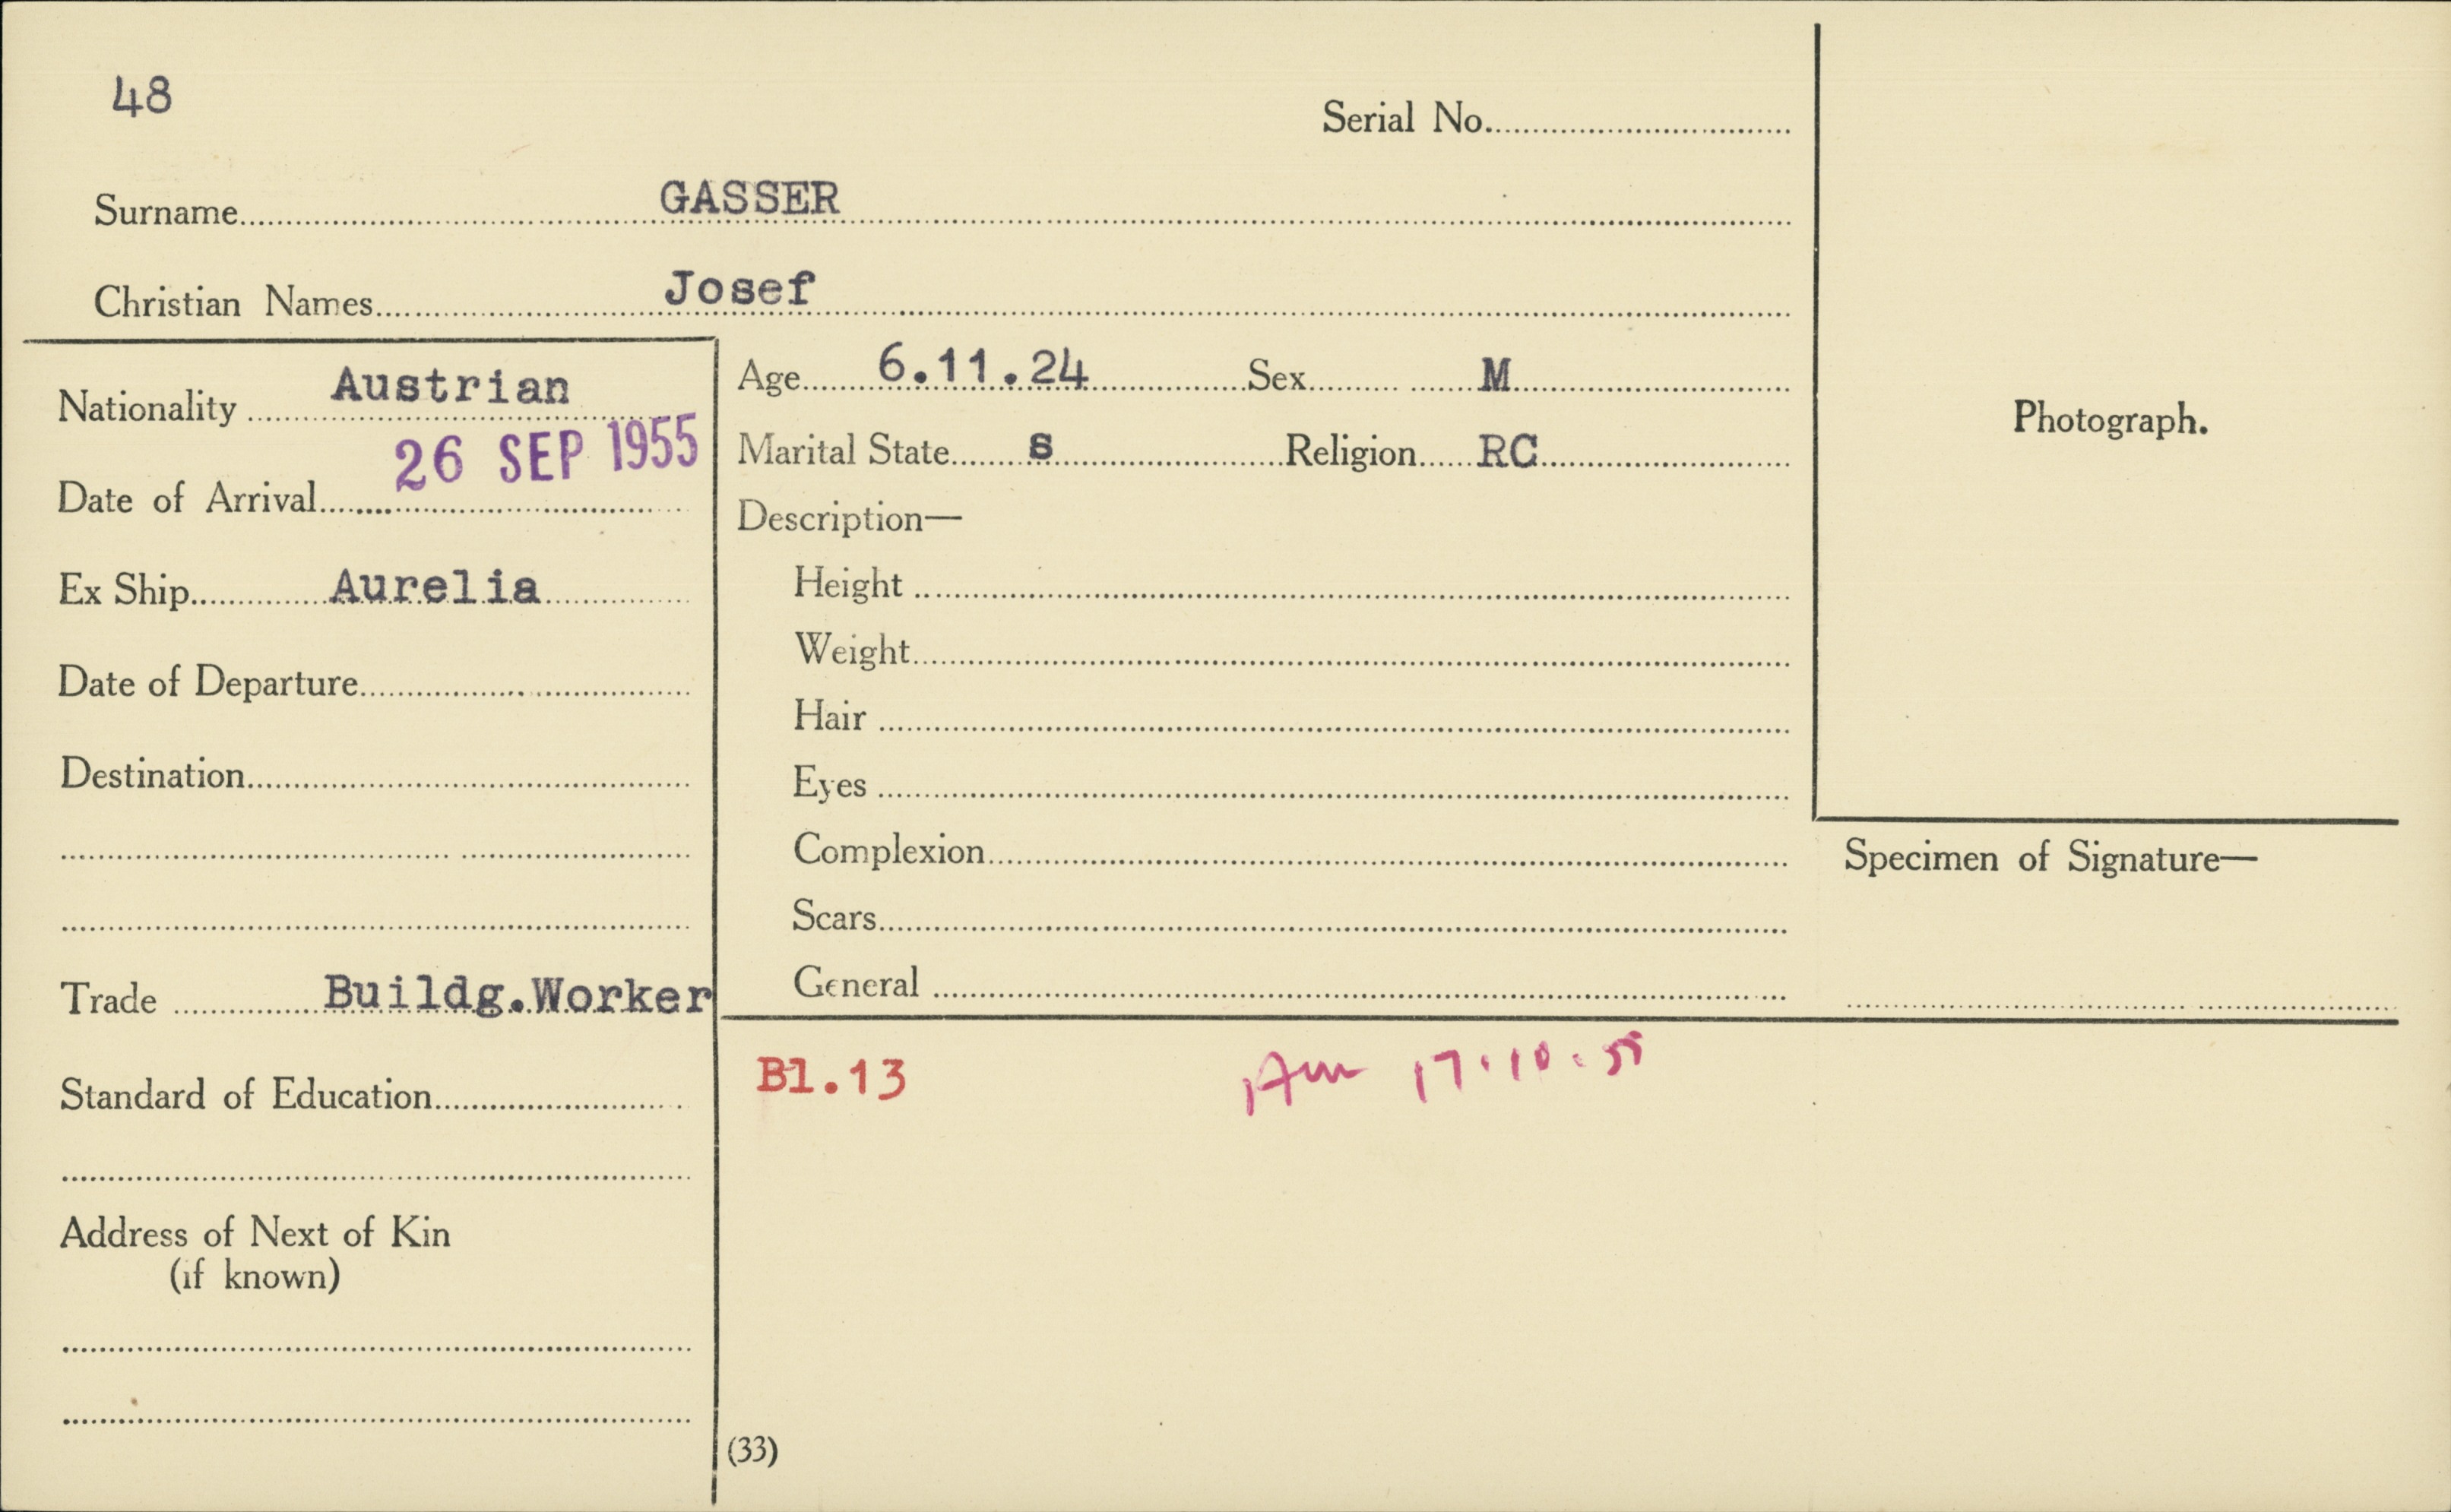 48
Serial No.
Surname GASSER
Christian Names Josef
Nationality Austrian
Date of Arrival 26 SEP 1955
Ex Ship Aurelia
Date of Departure
Destination
Trade Buildg.Worker
Standard of Education
Address of Next of Kin
(if known)
Age 6.11.24 Sex M
Marital State s Religion RC
Description—
Height
Weight
Hair
Eyes
Complexion
Scars
General
Photograph.
Specimen of Signature—
Bl.13 17.10.55
(33)